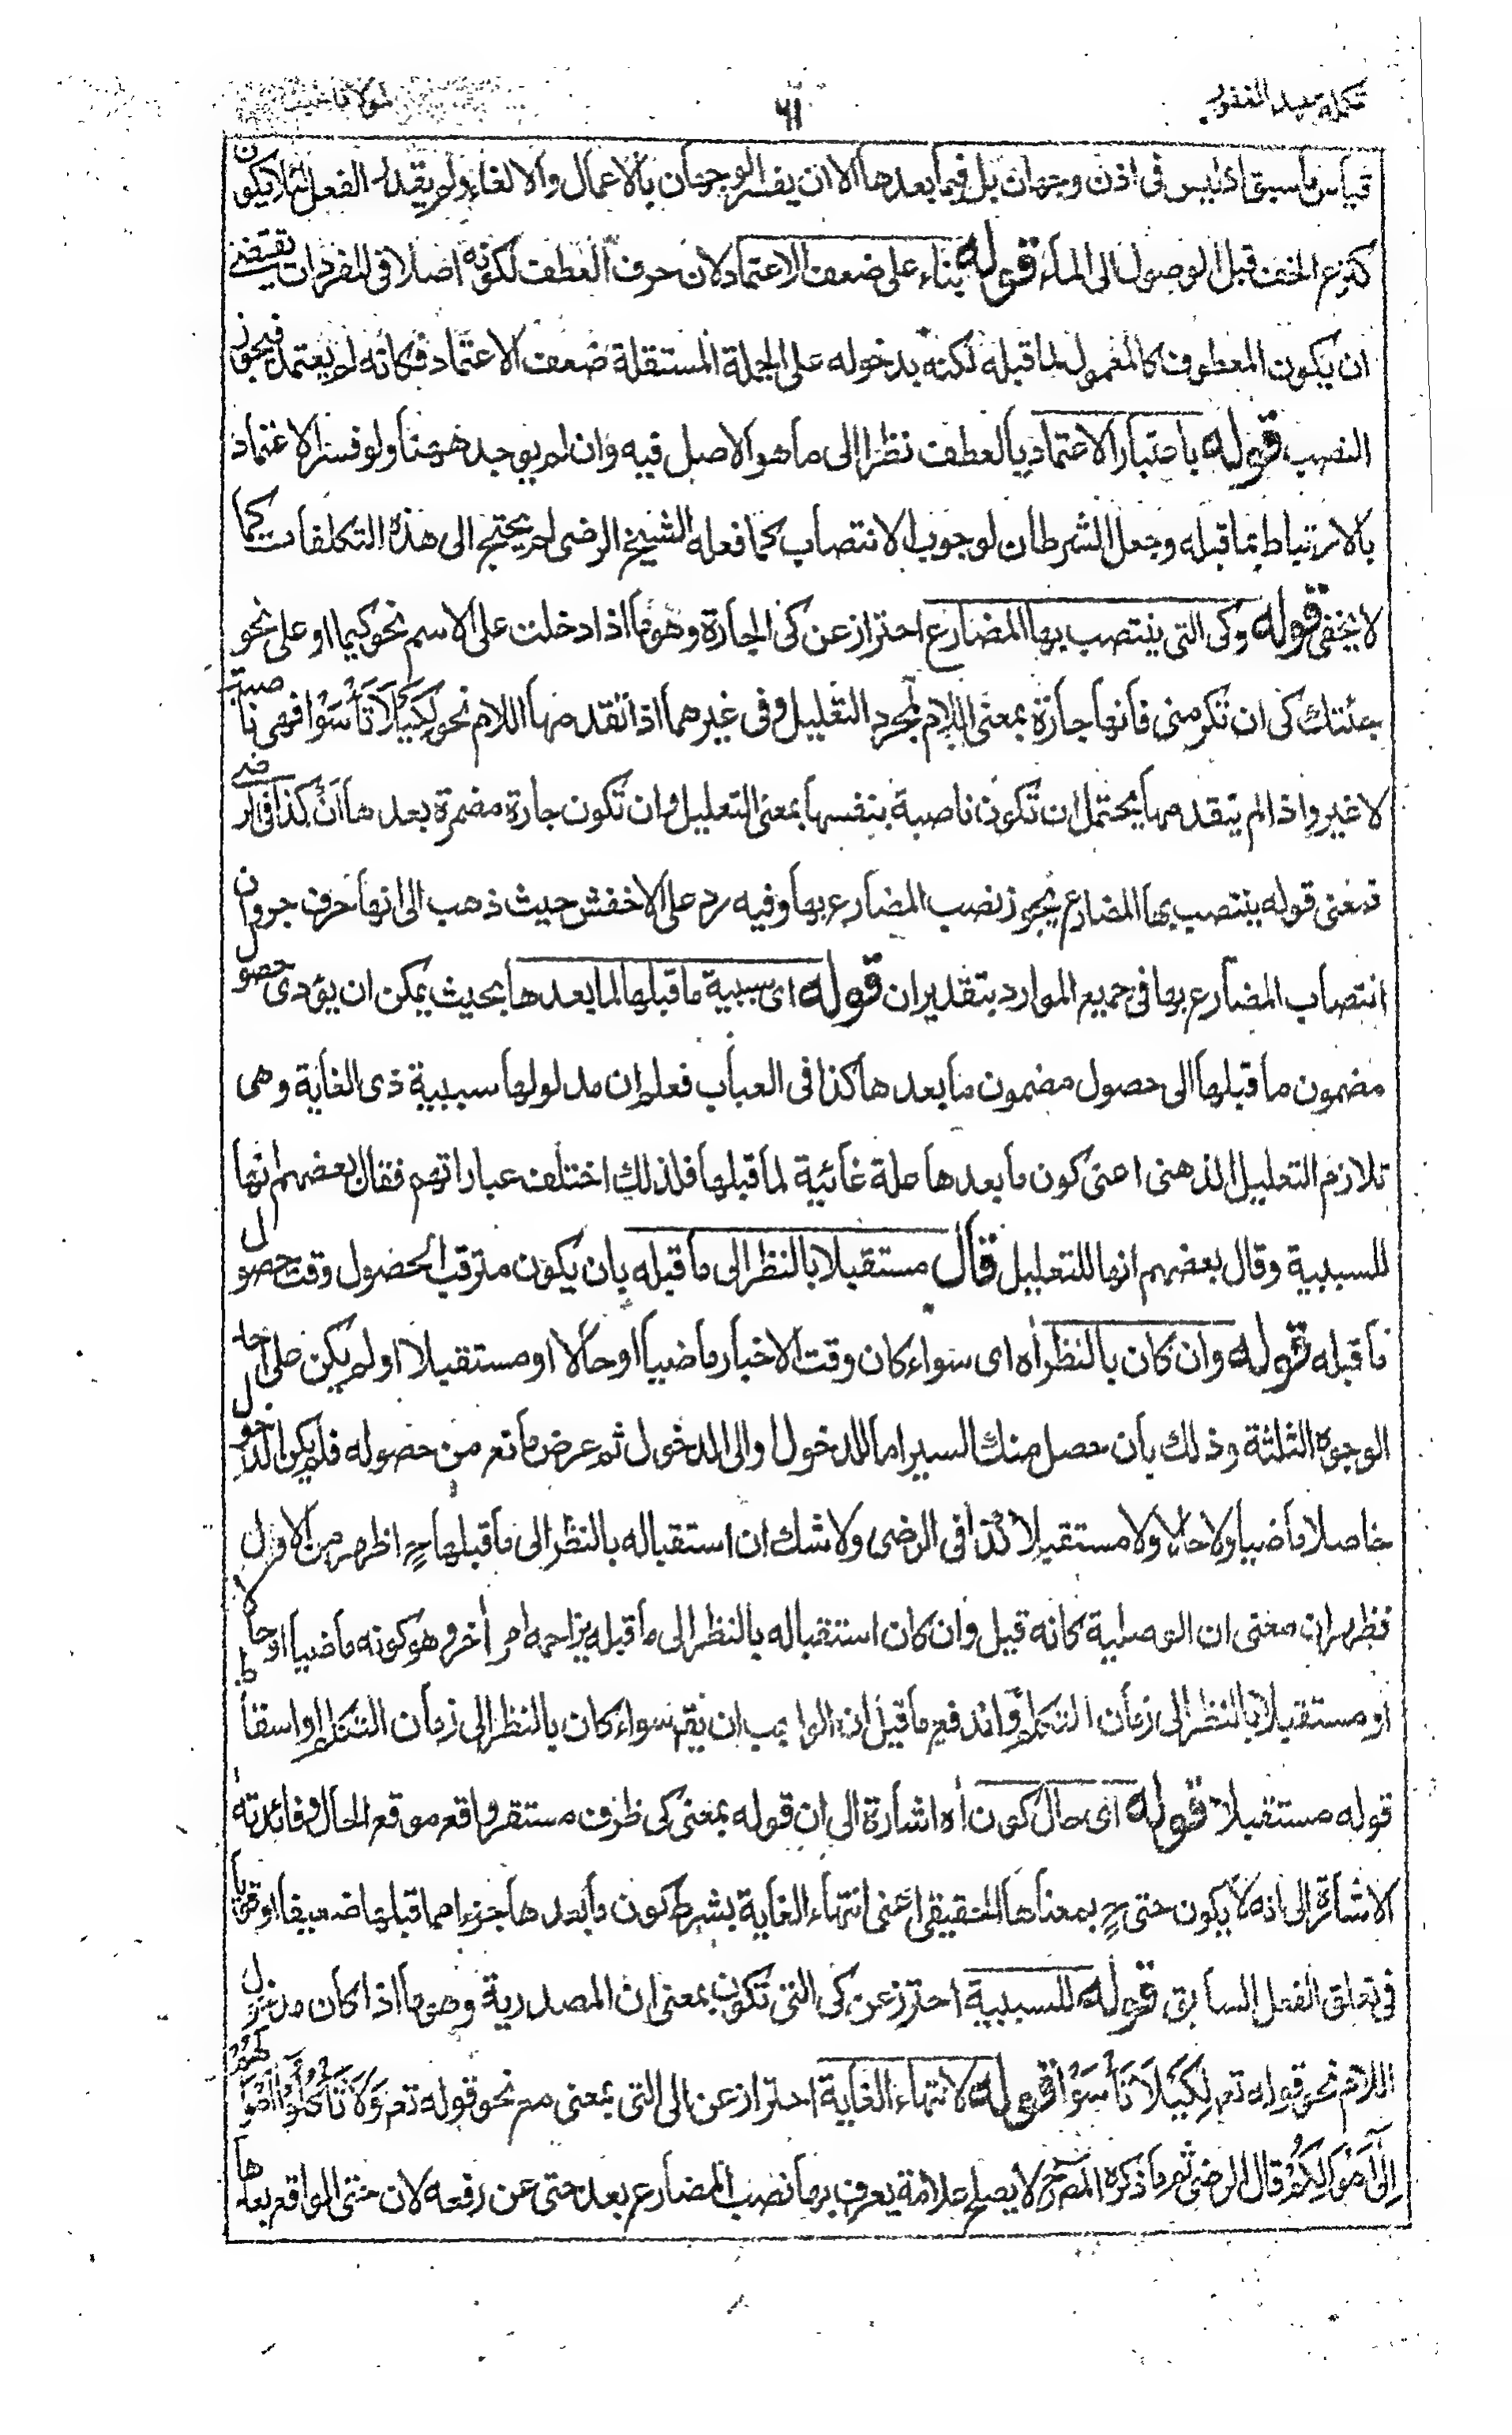 تكملة عبد الغفور
٦١
قياس ما سبق اذ ليس فى اذن وجهان بل فيما بعدها الا ان يفسر الوجهان بالاعمال والالغاء ولم يقدر الفعل لئلا يكون
كنزع الخف قبل الوصول الى الماء قوله بناء على ضعف الاعتماد لان حرف العطف لكونه اصلا فى المفردات يقتضى
ان يكون المعطوف كالمعمول لما قبله لكنه بدخوله على الجملة المستقلة ضعف الاعتماد فكانه لم يعتمد فيجوز
النصب قوله باعتبار الاعتماد بالعطف نظرا الى ما هو الاصل فيه وان لم يوجد ههنا ولو فسر الاعتماد
بالارتباط بما قبله وجعل الشرطان لوجوب الانتصاب كما فعله الشيخ الرضى لم يحتج الى هذه التكلفات كما
لا يخفى قوله وكى التى ينتصب بها المضارع احتراز عن كى الجارة وهو ما اذا دخلت على الاسم نحو كيما او على نحو
جئتك كى ان تكرمنى فانها جارة بمعنى اللام لمجرد التعليل وفى غيرهما اذا تقدمها اللام نحو لِكَيْلَا تَأْسَوْا فهى ناصبة
لا غير واذا لم يتقدمها يحتمل ان تكون ناصبة بنفسها بمعنى التعليل وان تكون جارة مضمرة بعدها اَنْ كذا فى الرضى
فمعنى قوله ينتصب بها المضارع يجوز نصب المضارع بها وفيه رد على الاخفش حيث ذهب الى انها حرف جر وان
انتصاب المضارع بها فى جميع الموارد بتقدير ان قوله اى سببية ما قبلها لما بعدها بحيث يمكن ان يؤدى حصول
مضمون ما قبلها الى حصول مضمون ما بعدها كذا فى العباب فعلم ان مدلولها سببية ذى الغاية وهى
تلازم التعليل الذهنى اعنى كون ما بعدها علة غائية لما قبلها فلذلك اختلف عباراتهم فقال بعضهم انها
للسببية وقال بعضهم انها للتعليل قال مستقبلا بالنظر الى ما قبله بان يكون مترقب الحصول وقت حصول
ما قبله قوله وان كان بالنظر اه اى سواء كان وقت الاخبار ماضيا او حالا او مستقبلا او لم يكن على احد
الوجوه الثلثة وذلك بان حصل منك السير اما للدخول او الى الدخول ثم عرض مانع من حصوله فلم يكن الدخول
حاصلا ماضيا ولا حالا ولا مستقبلا كذا فى الرضى ولا شك ان استقباله بالنظر الى ما قبلها ح اظهر من الاول
فظهر ان معنى ان الوصلية كانه قيل وان كان استقباله بالنظر الى ما قبله يزاحمه امر اخر وهو كونه ماضيا او حالا
او مستقبلا بالنظر الى زمان التكلم واندفع ما قيل ان الواجب ان يقم سواء كان بالنظر الى زمان التكلم او اسقاط
قوله مستقبلا قوله اى حال كون اه اشارة الى ان قوله بمعنى كى ظرف مستقر واقع موقع الحال وفائدته
الاشارة الى انه لا يكون حتى ح بمعناها الحقيقى اعنى انتهاء الغاية بشرط كون ما بعدها جزء مما قبلها ضعيفا او قويا
فى تعلق الفعل السابق قوله للسببية احترز عن كى التى تكون بمعنى ان المصدرية وهو ما اذا كان مدخول
اللام نحو قوله تعم لِكَيْلَا تَأْسَوْا قوله لانتهاء الغاية احتراز عن الى التى بمعنى مع نحو قوله تعم وَلَا تَأْكُلُوا اَمْوَالَهُمْ
اِلٰى اَمْوَالِكُمْ قال الرضى ثم ما ذكره المصر لا يصلح علامة يعرف بها نصب المضارع بعد حتى عن رفعه لان حتى الواقع بعدها